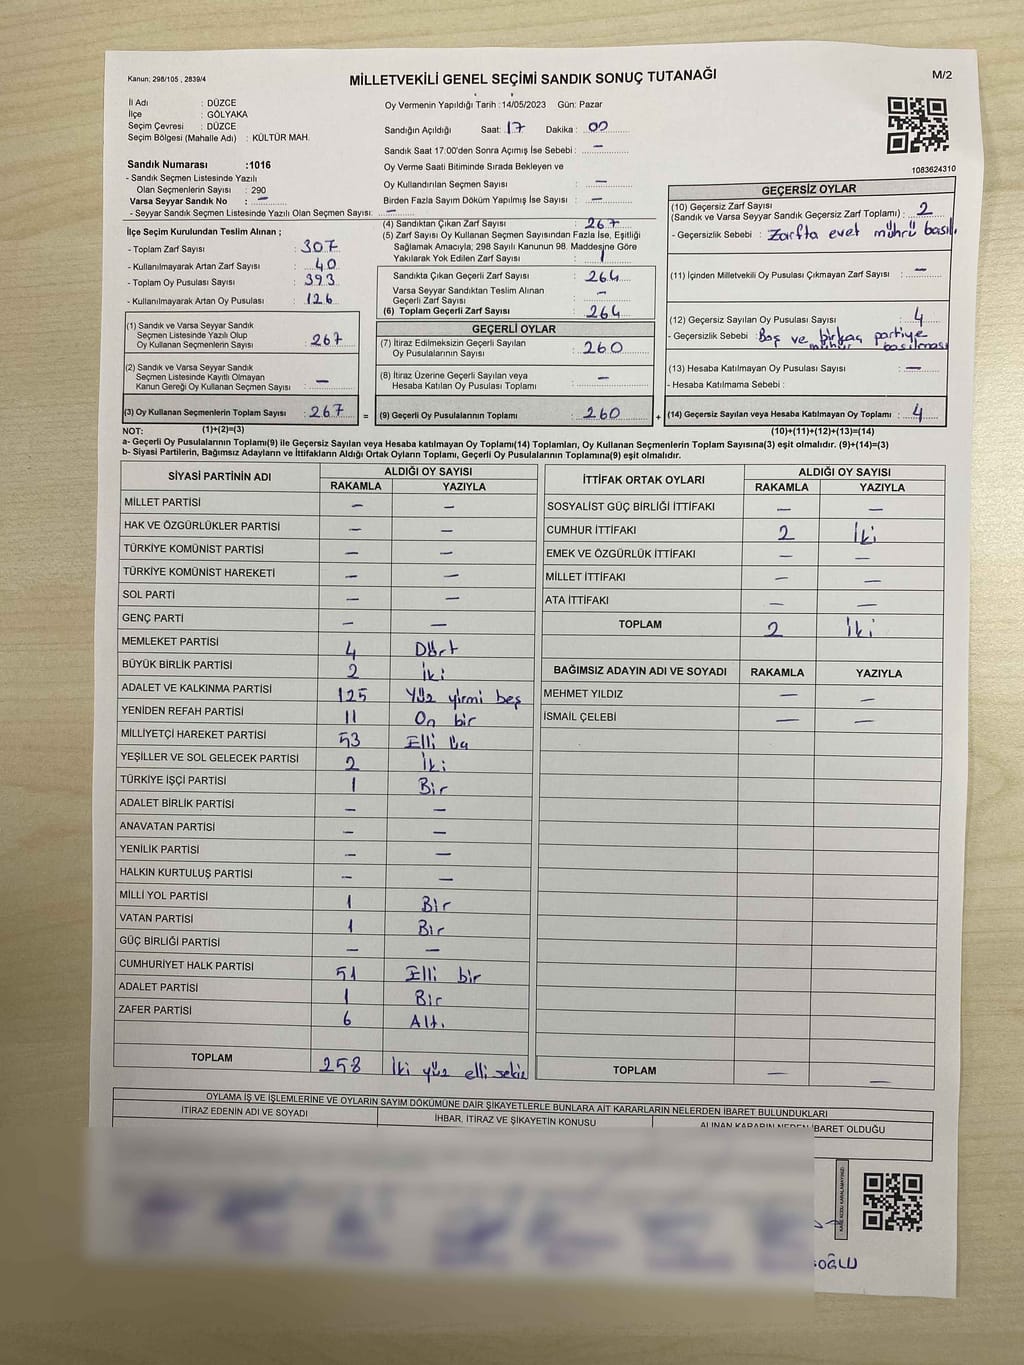 Kanun; 298/105 , 2839/4
MİLLETVEKİLİ GENEL SEÇİMİ SANDIK SONUÇ TUTANAĞI
M/2
İl Adı : DÜZCE
İlçe : GÖLYAKA
Seçim Çevresi : DÜZCE
Seçim Bölgesi (Mahalle Adı) : KÜLTÜR MAH.
Oy Vermenin Yapıldığı Tarih :14/05/2023 Gün: Pazar
Sandığın Açıldığı Saat: 17 Dakika : 00
Sandık Saat 17:00'den Sonra Açımış İse Sebebi : —
Oy Verme Saati Bitiminde Sırada Bekleyen ve
Oy Kullandırılan Seçmen Sayısı : —
Birden Fazla Sayım Döküm Yapılmış İse Sayısı : —
1083624310
Sandık Numarası :1016
- Sandık Seçmen Listesinde Yazılı
Olan Seçmenlerin Sayısı : 290
Varsa Seyyar Sandık No : —
- Seyyar Sandık Seçmen Listesinde Yazılı Olan Seçmen Sayısı: —
İlçe Seçim Kurulundan Teslim Alınan ;
- Toplam Zarf Sayısı : 307
- Kullanılmayarak Artan Zarf Sayısı : 40
- Toplam Oy Pusulası : 393
- Kullanılmayarak Artan Oy Pusulası : 126
(1) Sandık ve Varsa Seyyar Sandık
Seçmen Listesinde Yazılı Olup
Oy Kullanan Seçmenlerin Sayısı : 267
(2) Sandık ve Varsa Seyyar Sandık
Seçmen Listesinde Kayıtlı Olmayan
Kanun Gereği Oy Kullanan Seçmen Sayısı : —
(3) Oy Kullanan Seçmenlerin Toplam Sayısı : 267 =
(1)+(2)=(3)
(4) Sandıktan Çıkan Zarf Sayısı : 267
(5) Zarf Sayısı Oy Kullanan Seçmen Sayısından Fazla İse, Eşitliği
Sağlamak Amacıyla; 298 Sayılı Kanunun 98. Maddesine Göre
Yakılarak Yok Edilen Zarf Sayısı : 1
Sandıkta Çıkan Geçerli Zarf Sayısı : 264
Varsa Seyyar Sandıktan Teslim Alınan
Geçerli Zarf Sayısı : —
(6) Toplam Geçerli Zarf Sayısı : 264
GEÇERLİ OYLAR
(7) İtiraz Edilmeksizin Geçerli Sayılan
Oy Pusulalarının Sayısı : 260
(8) İtiraz Üzerine Geçerli Sayılan veya
Hesaba Katılan Oy Pusulası Toplamı : —
(9) Geçerli Oy Pusulalarının Toplamı : 260 +
GEÇERSİZ OYLAR
(10) Geçersiz Zarf Sayısı
(Sandık ve Varsa Seyyar Sandık Geçersiz Zarf Toplamı) : 2
- Geçersizlik Sebebi : Zarfta evet mührü basılı
(11) İçinden Milletvekili Oy Pusulası Çıkmayan Zarf Sayısı : —
(12) Geçersiz Sayılan Oy Pusulası Sayısı : 4
- Geçersizlik Sebebi : Boş ve birkaç partiye
mühür basılması
(13) Hesaba Katılmayan Oy Pusulası Sayısı : —
- Hesaba Katılmama Sebebi :
(14) Geçersiz Sayılan veya Hesaba Katılmayan Oy Toplamı : 4
(10)+(11)+(12)+(13)=(14)
NOT:
a- Geçerli Oy Pusulalarının Toplamı(9) ile Geçersiz Sayılan veya Hesaba katılmayan Oy Toplamı(14) Toplamları, Oy Kullanan Seçmenlerin Toplam Sayısına(3) eşit olmalıdır. (9)+(14)=(3)
b- Siyasi Partilerin, Bağımsız Adayların ve İttifakların Aldığı Ortak Oyların Toplamı, Geçerli Oy Pusulalarının Toplamına(9) eşit olmalıdır.
SİYASİ PARTİNİN ADI ALDIĞI OY SAYISI
RAKAMLA YAZIYLA
MİLLET PARTİSİ — —
HAK VE ÖZGÜRLÜKLER PARTİSİ — —
TÜRKİYE KOMÜNİST PARTİSİ — —
TÜRKİYE KOMÜNİST HAREKETİ — —
SOL PARTİ — —
GENÇ PARTİ — —
MEMLEKET PARTİSİ 4 Dört
BÜYÜK BİRLİK PARTİSİ 2 İki
ADALET VE KALKINMA PARTİSİ 125 Yüz yirmi beş
YENİDEN REFAH PARTİSİ 11 On bir
MİLLİYETÇİ HAREKET PARTİSİ 53 Elli üç
YEŞİLLER VE SOL GELECEK PARTİSİ 2 İki
TÜRKİYE İŞÇİ PARTİSİ 1 Bir
ADALET BİRLİK PARTİSİ — —
ANAVATAN PARTİSİ — —
YENİLİK PARTİSİ — —
HALKIN KURTULUŞ PARTİSİ — —
MİLLİ YOL PARTİSİ 1 Bir
VATAN PARTİSİ 1 Bir
GÜÇ BİRLİĞİ PARTİSİ — —
CUMHURİYET HALK PARTİSİ 51 Elli bir
ADALET PARTİSİ 1 Bir
ZAFER PARTİSİ 6 Altı
TOPLAM 258 İki yüz elli sekiz
İTTİFAK ORTAK OYLARI ALDIĞI OY SAYISI
RAKAMLA YAZIYLA
SOSYALİST GÜÇ BİRLİĞİ İTTİFAKI — —
CUMHUR İTTİFAKI 2 İki
EMEK VE ÖZGÜRLÜK İTTİFAKI — —
MİLLET İTTİFAKI — —
ATA İTTİFAKI — —
TOPLAM 2 İki
BAĞIMSIZ ADAYIN ADI VE SOYADI RAKAMLA YAZIYLA
MEHMET YILDIZ — —
İSMAİL ÇELEBİ — —
TOPLAM — —
OYLAMA İŞ VE İŞLEMLERİNE VE OYLARIN SAYIM DÖKÜMÜNE DAİR ŞİKAYETLERLE BUNLARA AİT KARARLARIN NELERDEN İBARET BULUNDUKLARI
İTİRAZ EDENİN ADI VE SOYADI
İHBAR, İTİRAZ VE ŞİKAYETİN KONUSU
ALINAN KARARIN NEDEN İBARET OLDUĞU